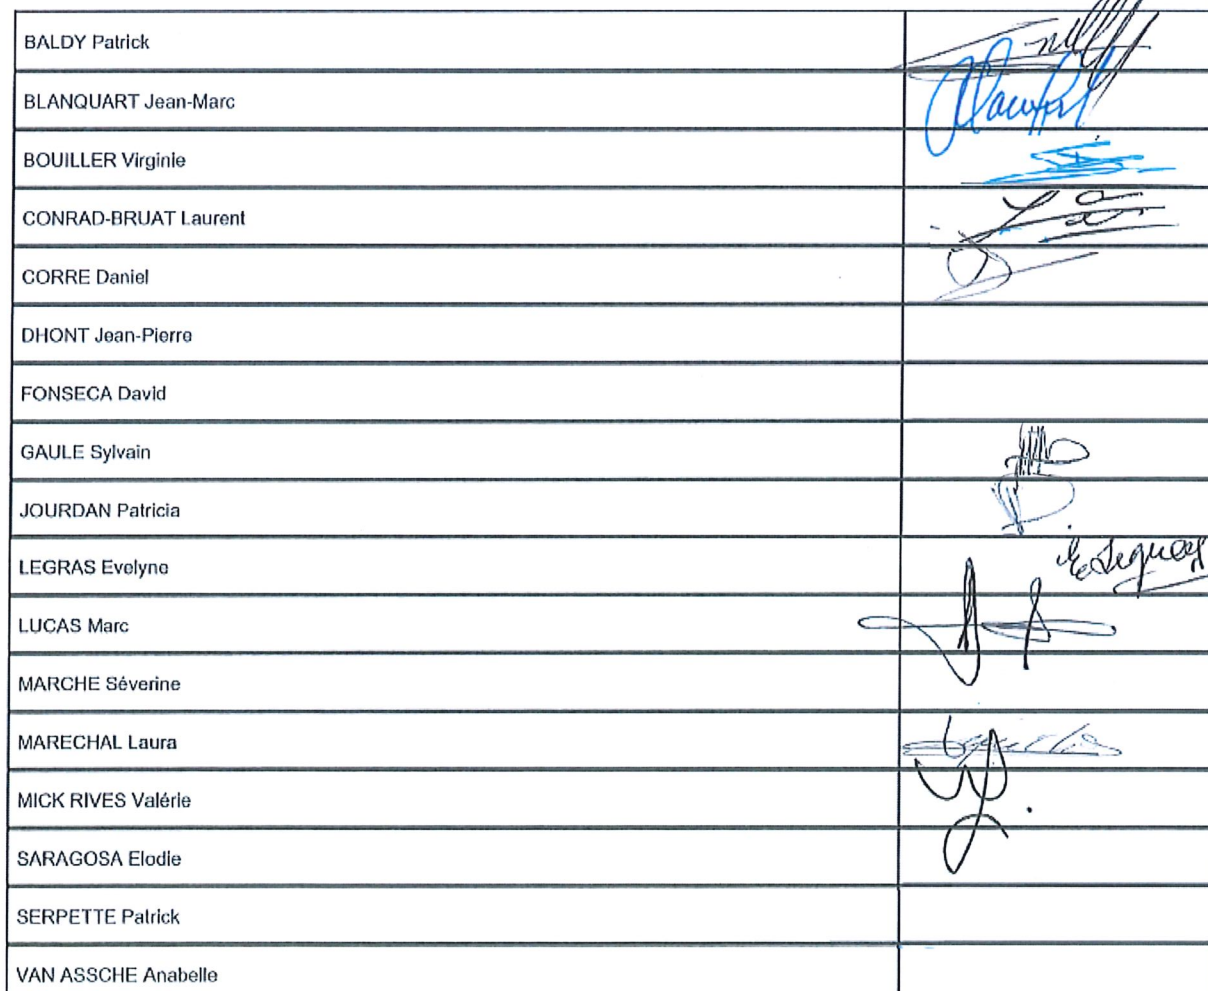 BALDY Patrick
BLANQUART Jean-Marc
BOUILLER Virginie
CONRAD-BRUAT Laurent
CORRE Daniel
DHONT Jean-Pierre
FONSECA David
GAULE Sylvain
JOURDAN Patricia
LEGRAS Evelyne
LUCAS Marc
MARCHE Séverine
MARECHAL Laura
MICK RIVES Valérie
SARAGOSA Elodie
SERPETTE Patrick
VAN ASSCHE Anabelle